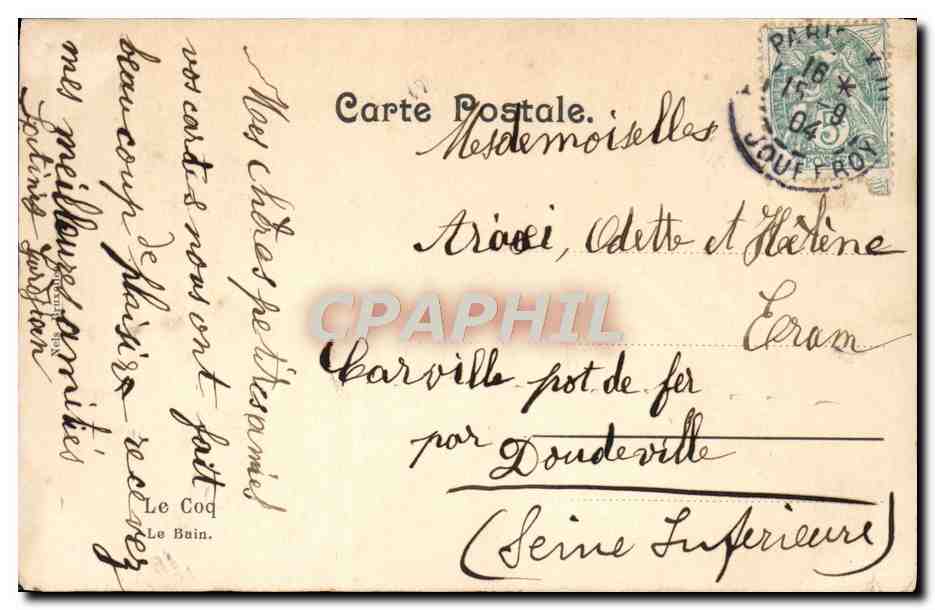 Carte Postale.
PARIS
16
15 - 9
04
JOUFFROY
5
Mesdemoiselles
Araxi, Odette et Hélène
Eram
Carville pot de fer
par Doudeville
(Seine Inférieure)
Mes chères petites amies
vos cartes nous ont fait
beaucoup de plaisir recevez
mes meilleures amitiés
Le Coq
Le Bain.
Nels
CPAPHIL